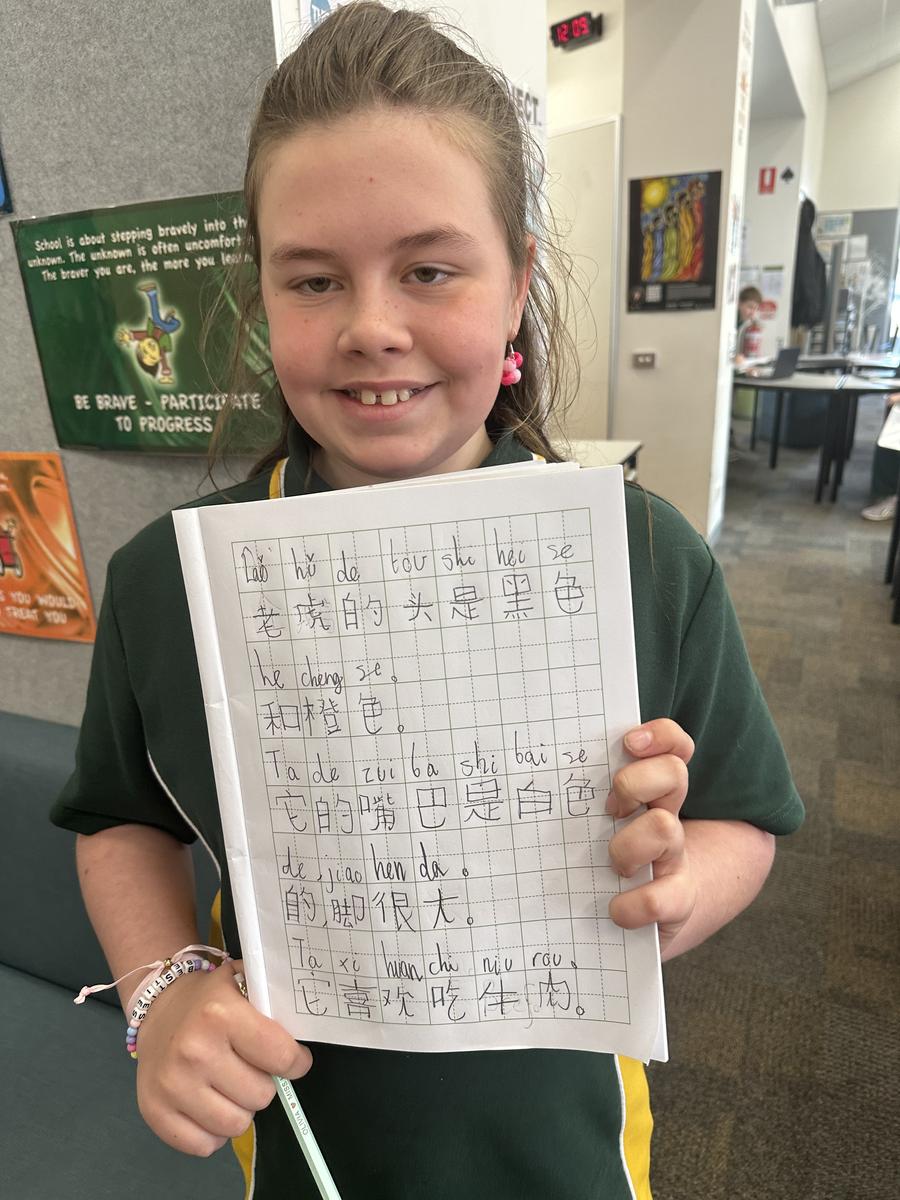 12:09
ECT.
School is about stepping bravely into the
unknown. The unknown is often uncomfort
The braver you are, the more you learn
BE BRAVE - PARTICIPATE
TO PROGRESS
S YOU WOULD
TREAT YOU
Lǎo hǔ de tou shi hei se
老虎的头是黑色
he cheng se。
和橙色。
Ta de zui ba shi bai se
它的嘴巴是白色
de, jiao hen da。
的,脚很大。
Ta xi huan chi niu rou。
它喜欢吃牛肉。
OLIVIA ♥ MISS